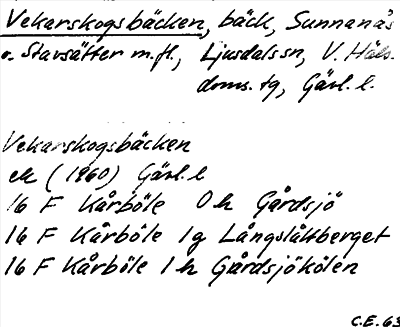 Vekarskogsbäcken, bäck, Sunnanås
o. Stavsätter m.fl., Ljusdals sn, V. Häls.
doms. tg, Gävl. l.
Vekarskogsbäcken
ek (1960) Gävl. l
16 F Kårböle 0h Gårdsjö
16 F Kårböle 1g Långslåttberget
16 F Kårböle 1h Gårdsjökölen
C.E. 63